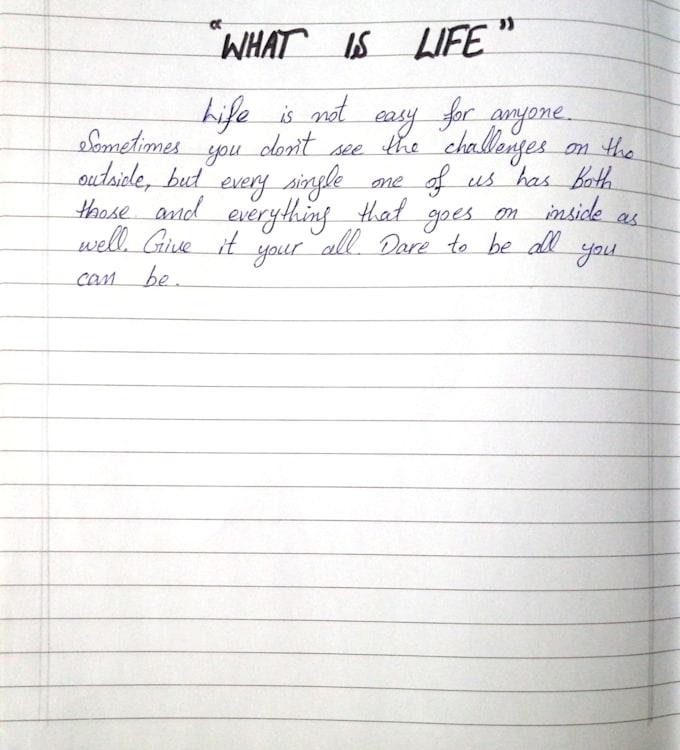 “WHAT IS LIFE”
Life is not easy for anyone.
Sometimes you don't see the challenges on the
outside, but every single one of us has Both
those and everything that goes on inside as
well. Give it your all. Dare to be all you
can be.